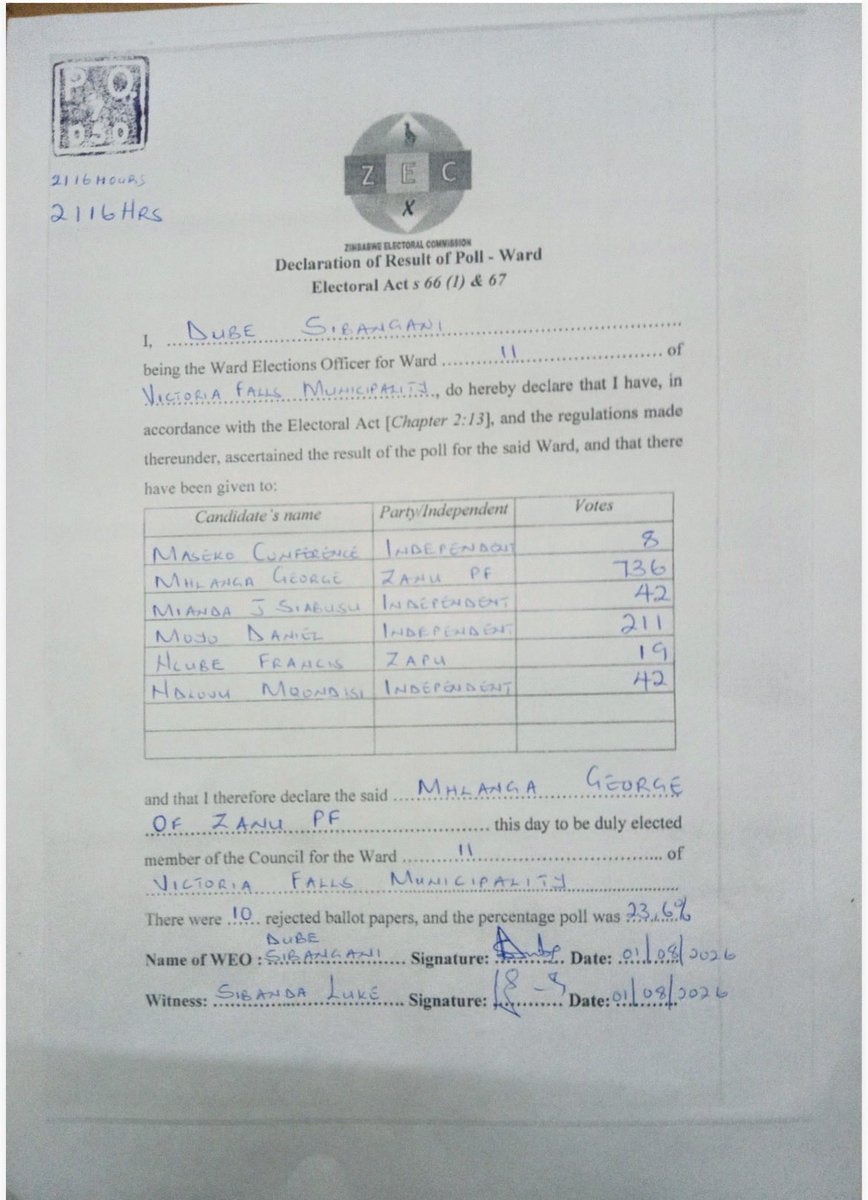 2116 HOURS
2116 HRS
Z E C
X
ZIMBABWE ELECTORAL COMMISSION
Declaration of Result of Poll - Ward
Electoral Act s 66 (1) & 67
I, DUBE SIBANGANI
being the Ward Elections Officer for Ward 11 of
VICTORIA FALLS MUNICIPALITY, do hereby declare that I have, in
accordance with the Electoral Act [Chapter 2:13], and the regulations made
thereunder, ascertained the result of the poll for the said Ward, and that there
have been given to:
Candidate's name Party/Independent Votes
MASEKO CONFERENCE INDEPENDENT 8
MHLANGA GEORGE ZANU PF 736
MIANDA J SIABUSU INDEPENDENT 42
MOYO DANIEL INDEPENDENT 211
NCUBE FRANCIS ZAPU 19
NDLOVU MQONDISI INDEPENDENT 42
and that I therefore declare the said MHLANGA GEORGE
OF ZANU PF this day to be duly elected
member of the Council for the Ward 11 of
VICTORIA FALLS MUNICIPALITY
There were 10 rejected ballot papers, and the percentage poll was 23.6%
DUBE
Name of WEO : SIBANGANI Signature: Date: 01/08/2026
Witness: SIBANDA LUKE Signature: Date: 01/08/2026